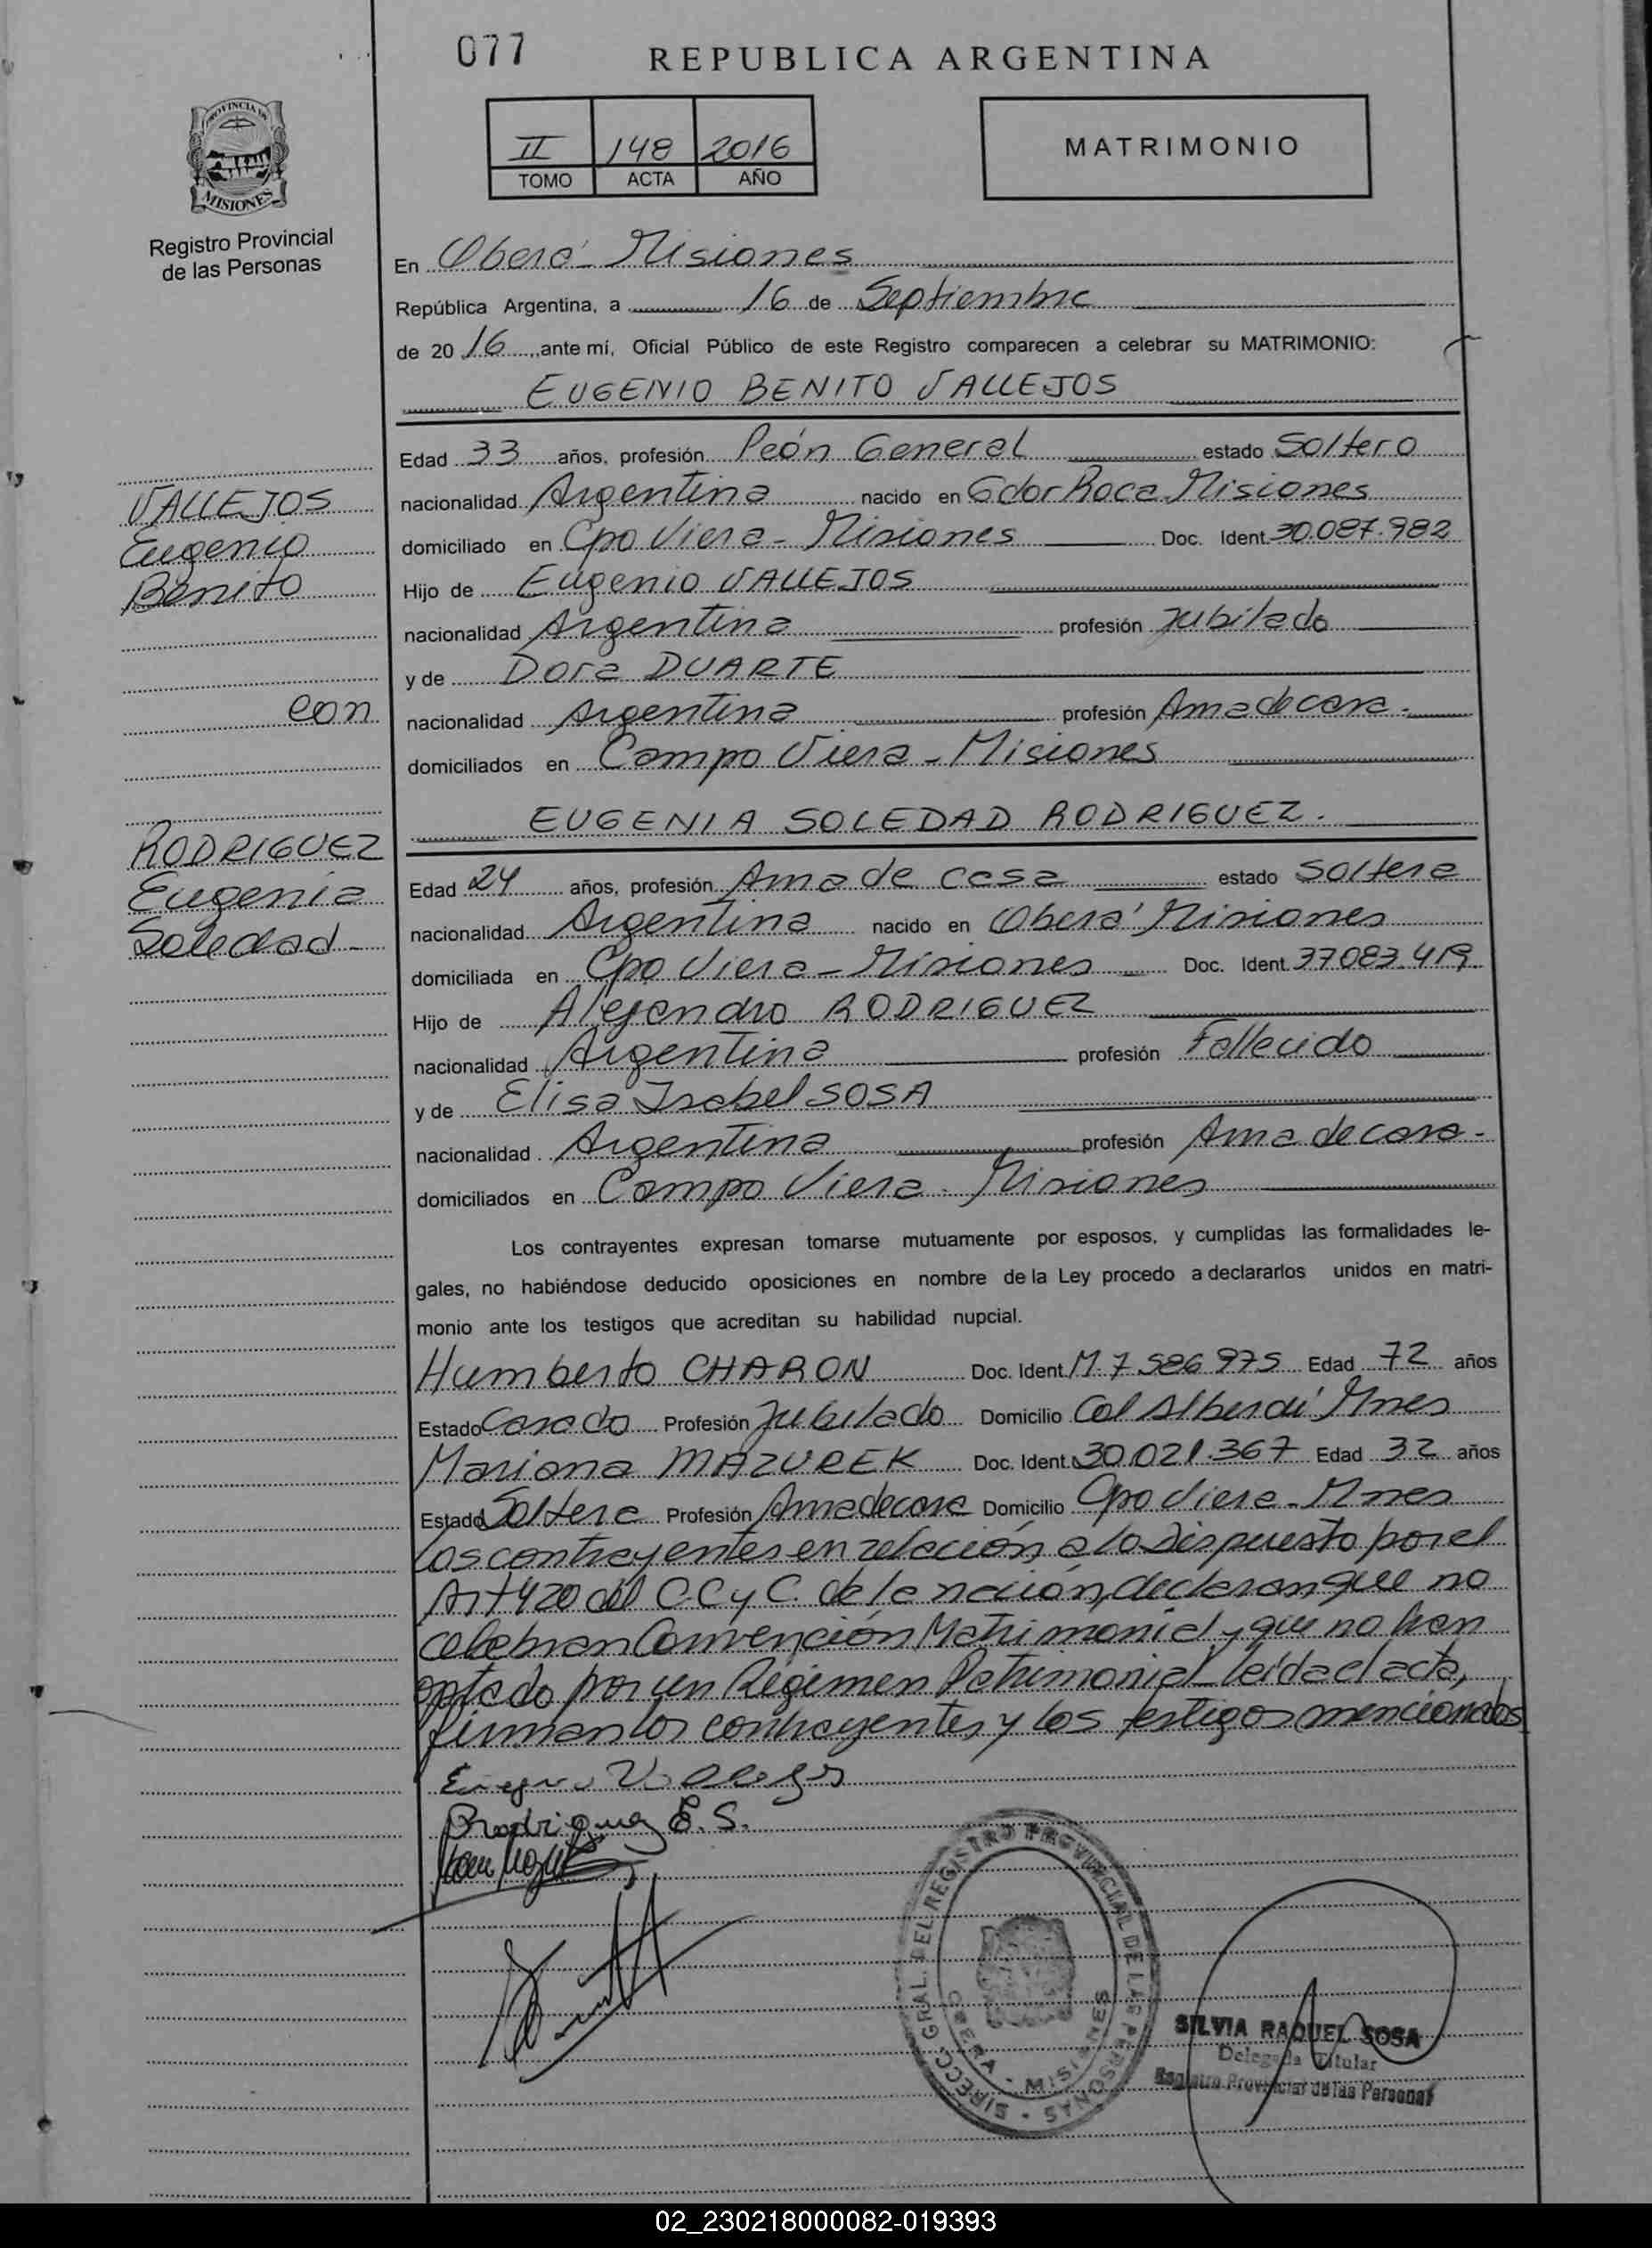 077
REPUBLICA ARGENTINA
PROVINCIA DE
MISIONES
Registro Provincial
de las Personas
II 148 2016
TOMO ACTA AÑO
MATRIMONIO
En Oberá - Misiones
República Argentina, a 16 de Septiembre
de 2016, ante mí, Oficial Público de este Registro comparecen a celebrar su MATRIMONIO:
EUGENIO BENITO VALLEJOS
Edad 33 años, profesión Peón General estado Soltero
VALLEJOS
Eugenio
Benito
nacionalidad Argentina nacido en Gdor Roca Misiones
domiciliado en Cpo Viera - Misiones Doc. Ident. 30.087.982
Hijo de Eugenio VALLEJOS
nacionalidad Argentina profesión Jubilado
y de Dora DUARTE
con
nacionalidad Argentina profesión Ama de casa.
domiciliados en Campo Viera - Misiones
EUGENIA SOLEDAD RODRIGUEZ.
RODRIGUEZ
Eugenia
Soledad
Edad 24 años, profesión Ama de casa estado Soltera
nacionalidad Argentina nacido en Oberá Misiones
domiciliada en Cpo Viera - Misiones Doc. Ident. 37.083.419
Hijo de Alejandro RODRIGUEZ
nacionalidad Argentina profesión Fallecido
y de Elisa Isabel SOSA
nacionalidad Argentina profesión Ama de casa -
domiciliados en Campo Viera - Misiones
Los contrayentes expresan tomarse mutuamente por esposos, y cumplidas las formalidades le-
gales, no habiéndose deducido oposiciones en nombre de la Ley procedo a declararlos unidos en matri-
monio ante los testigos que acreditan su habilidad nupcial.
Humberto CHARON Doc. Ident. M. 7.586.975 Edad 72 años
Estado Casado Profesión Jubilado Domicilio Col Alberdi Mnes
Mariana MAZUREK Doc. Ident. 30.021.367 Edad 32 años
Estado Soltera Profesión Ama de casa Domicilio Cpo Viera - Mnes
Los contrayentes en relación a lo dispuesto por el
Art 420 del C.C y C. de la nación, declaran que no
celebran Convención Matrimonial, y que no han
optado por un Régimen Patrimonial leída el acta,
firman los contrayentes y los testigos mencionados
Rodriguez E. S.
SIRECC. GRAL. DEL REGISTRO PROVINCIAL DE LAS PERSONAS
OBERA - MISIONES
SILVIA RAQUEL SOSA
Delegada Titular
Registro Provincial de las Personas
02_230218000082-019393